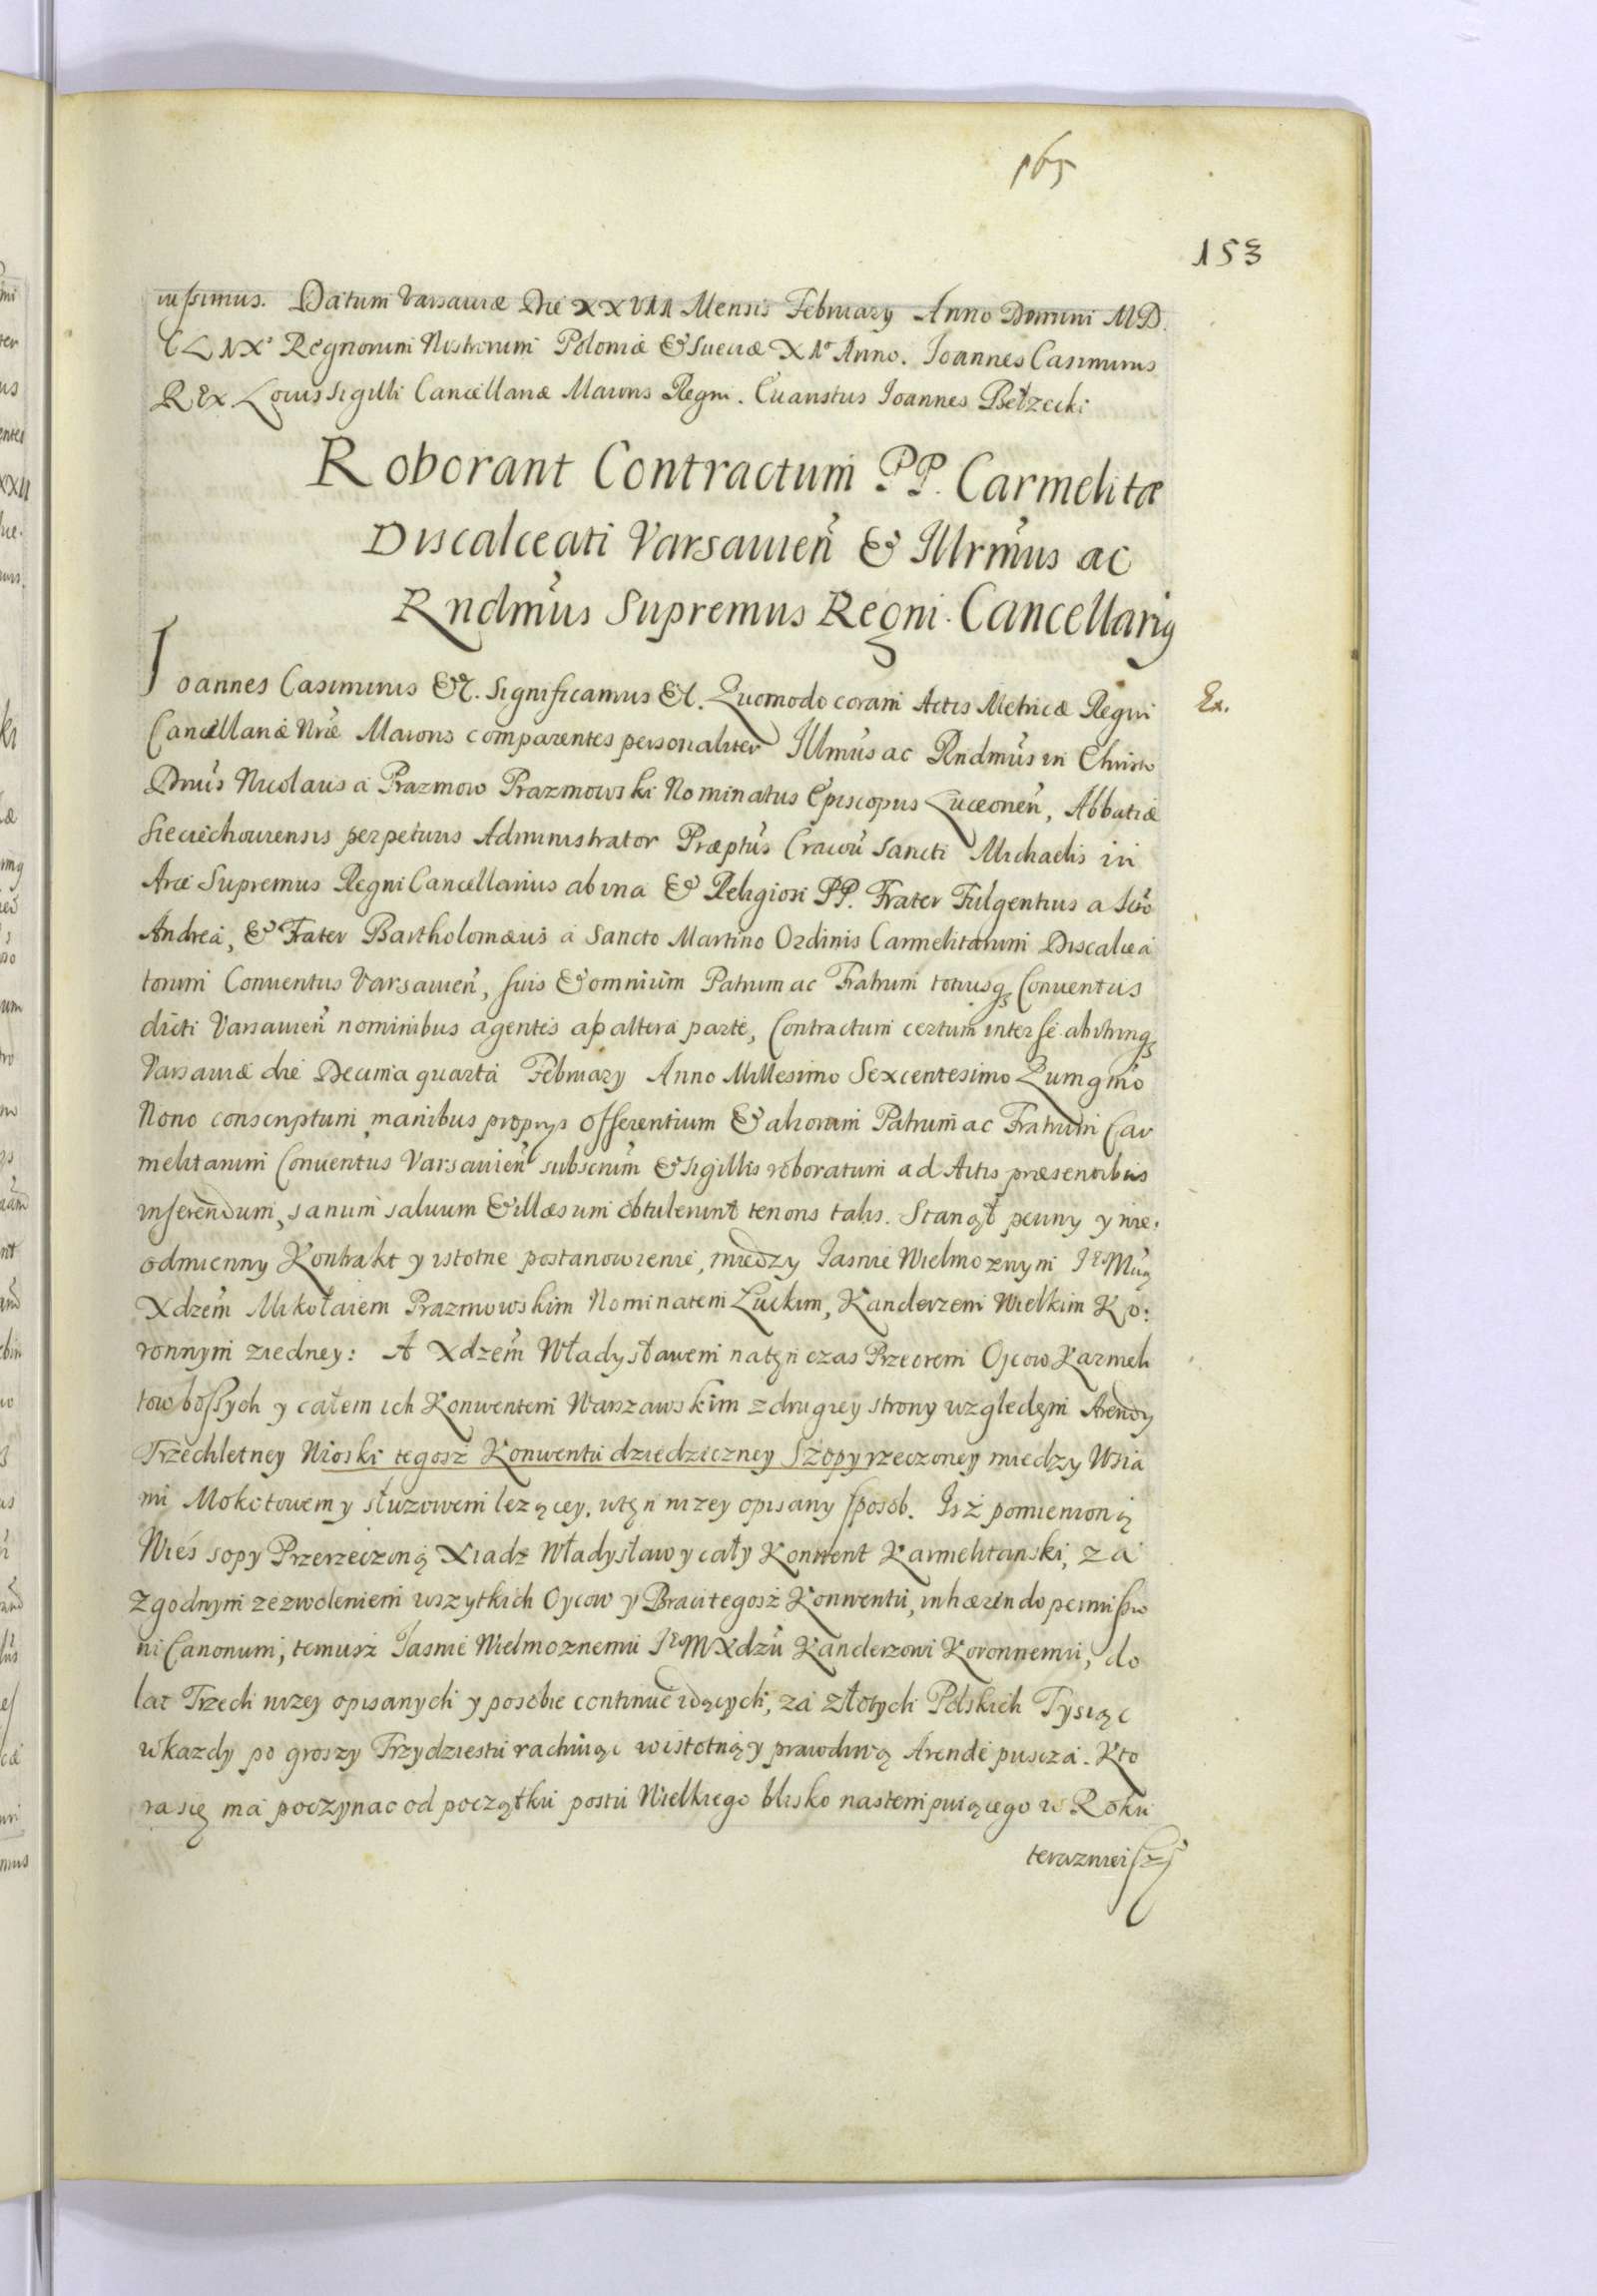 165
153
iussimus. Datum Varsaviæ Die XXVIII Mensis February Anno Domini MD.
CLIX° Regnorum Nostrorum Poloniæ & Sueciæ XI° Anno. Joannes Casimirus
REx Locus Sigilli Cancellariæ Maioris Regni. Euaristus Joannes Bełzecki
Roborant Contractum PP. Carmelitæ
Discalceati Varsavien̄ & Illrm̄us ac
Rndm̄us Supremus Regni Cancellarig
Joannes Casimirus &c. Significamus &c. Quomodo coram Actis Metricæ Regni
Ex.
Cancellariæ Nr̄æ Maioris comparentes personaliter Illm̄us ac Rndm̄us in Christo
Dnūs Nicolaus a Prazmow Prazmowski Nominatus Episcopus Luceoneñ, Abbatiæ
Sieciechouiensis perpetuus Administrator Præptūs Cracou̅ Sancti Michaelis in
Arce Supremus Regni Cancellarius ab una & Religiosi PP. Frater Fulgentius a Scto
Andrea, & Frater Bartholomæus a Sancto Martino Ordinis Carmelitarum Discalcea
torum Conuentus Varsauien̄, suis & omnium Patrum ac Fratrum totiusq; Conuentus
dicti Varsauien̄ nominibus agentes ap altera parte, Contractum certum inter se abihinq;
Varsauiæ die Decima quarta February Anno Millesimo Sexcentesimo Quinqm̄o
Nono conscriptum manibus proprys Offerentium & aliorum Patrum ac Fratrum Car
melitarum Conuentus Varsauien̄ subscrum̄ & sigillis roboratum ad Actis præsentibus
inserendum, sanum saluum & illæsum obtulerunt tenoris talis. Stanął pewny y nie,
odmienny Kontrakt y istotne postanowienie, miedzy Jasnie Wielmoznym JeMcią
Xdzem̄ Mikołaiem Prazmowskim Nominatem Łuckim, Kanclerzem Wielkim Ko:
ronnym ziedney: A Xdzem̄ Władysławem natęn czas Przeorem Ojcow Karmeli
tow bossych y całem ich Konwentem Warszawskim z drugiey strony względęm Arendy
Trzechletney Wioski tegosz Konwentu dziedziczney Szopy rzeczoney miedzy Wsia
mi Mokotowem y słuzowem lezącey, wtęn nizey opisany sposob. Jsz pomienioną
Wies sopy Przerzeczoną Xiadz Władysław y cały Konwent Karmelitanski, za
zgodnym zezwoleniem wszytkich Oycow y Braci tegosz Konwentu, inhærendo permissio
ni Canonum, temusz Jasnie Wielmoznemu JeM Xdzu Kanclerzowi Koronnemu, do
lat Trzech nizey opisanych y posobie continue idących, za złotych Polskich Tysiąc
w kazdy po groszy Trzydziestu rachuiąc w istotną y prawdiwą Arende puscza. Kto
ra się ma poczynac od początku postu Wielkiego blisko nastempuiącego w Roku
terazniejszy